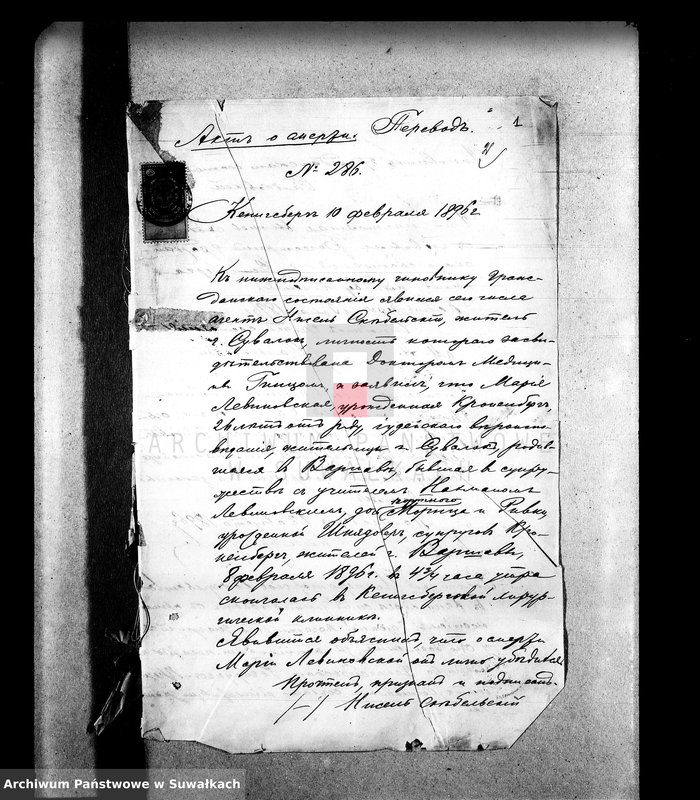 Актъ о смерти. Переводъ. 1
№ 286.
Кенигсбергъ 10 февраля 1896 г.
Къ нижеподписанному чиновнику граж-
данскаго состоянія явился сего числа
агентъ Нисель Скибельскій, житель
г. Сувалокъ, личность котораго засви-
дѣтельствована Докторомъ Медици-
ны, и заявилъ, что Марія
Левиновская, урожденная Кроненбергъ,
лѣтъ отъ роду, іудейскаго вѣроиспо-
вѣданія, жительница г. Сувалокъ, родив-
шаяся въ Варшавѣ, бывшая въ супру-
жествѣ съ учителемъ Нахманомъ
Левиновскимъ, дочь портнаго Морица и Ривки,
урожденной супруговъ Кро-
ненбергъ, жителей г. Варшавы,
8 февраля 1896 г. въ 4 3/4 часа утра
скончалась въ Кенигсбергской хирур-
гической клиникѣ.
Явившійся объяснилъ, что о смерти
Маріи Левиновской онъ лично убѣдился
Прочтенъ, признанъ и подписанъ.
/-/ Нисель Скибельскій
ARCHIWUM PAŃSTWOWE
W SUWAŁKACH
Archiwum Państwowe w Suwałkach